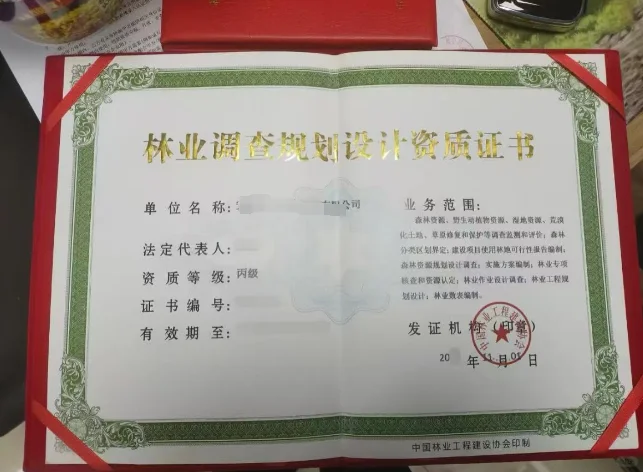 林业调查规划设计资质证书
单位名称:
公司
法定代表人:
资质等级:丙级
证书编号:
有效期至:
业务范围:
森林资源、野生动植物资源、湿地资源、荒漠
化土地、草原修复和保护等调查监测和评价；森林
分类区划界定；建设项目使用林地可行性报告编制；
森林资源规划设计调查；实施方案编制；林业专项
核查和资源认定；林业作业设计调查；林业工程规
划设计；林业数表编制。
发证机构（印章）
中国林业工程建设协会
20 年 11 月 05 日
中国林业工程建设协会印制